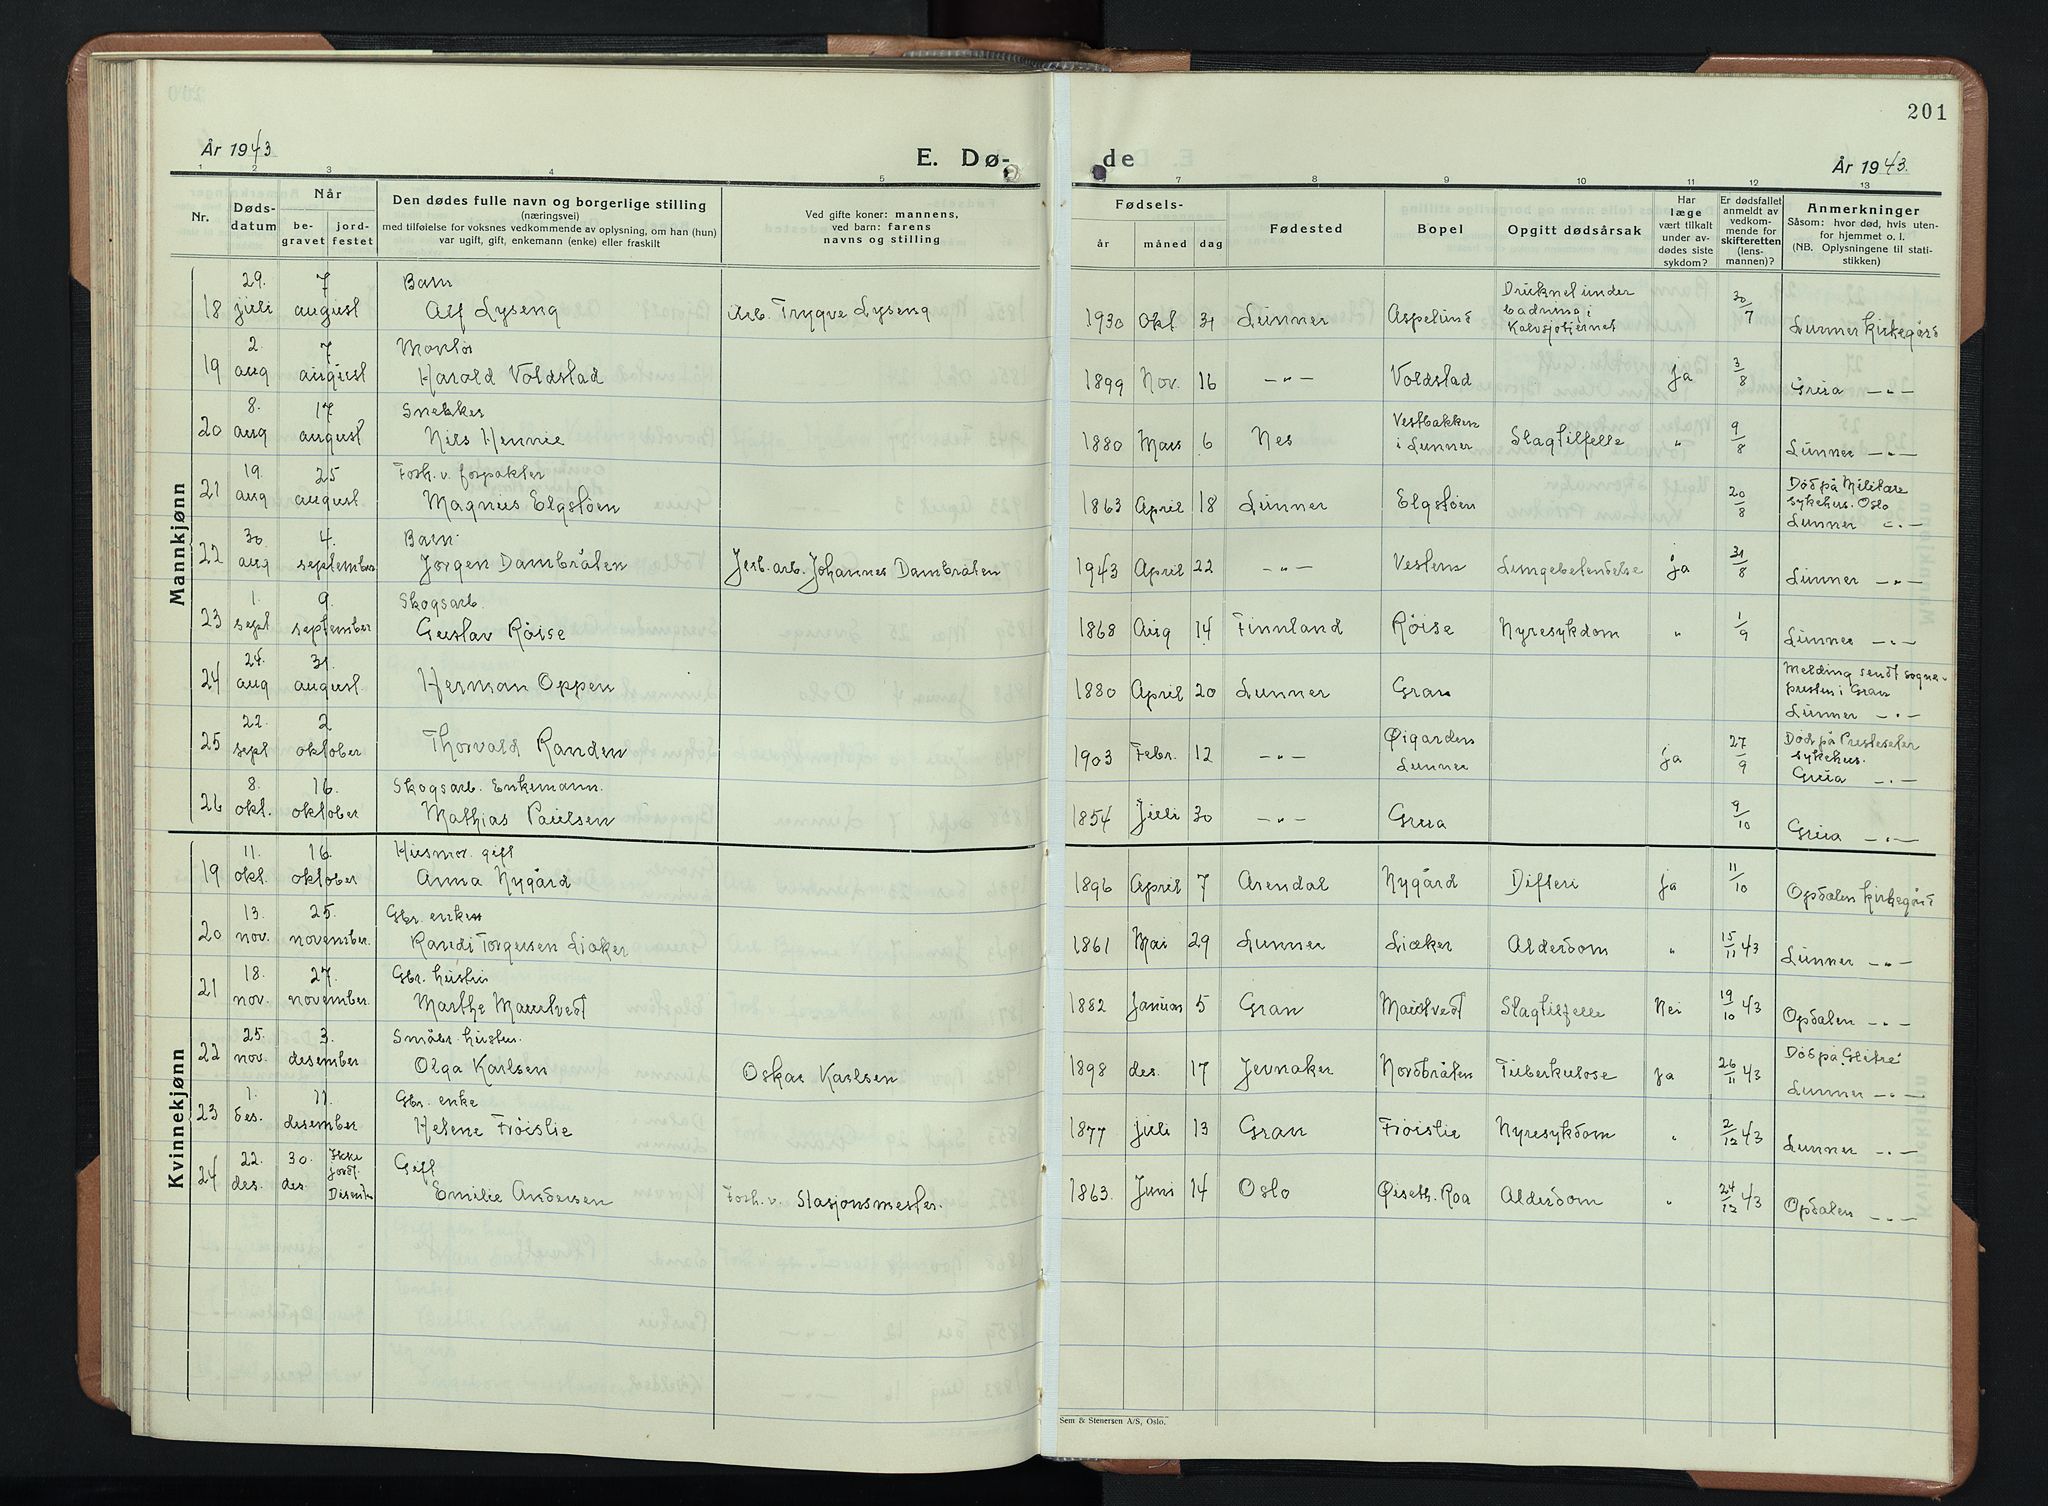 201
År 1943
E. Dø-
de
År 1943.
1 2 3 4 5 7 8 9 10 11 12 13
Nr.
Døds-
datum
Når
be-
gravet
jord-
festet
Den dødes fulle navn og borgerlige stilling
(næringsvei)
med tilføielse for voksnes vedkommende av oplysning, om han (hun)
var ugift, gift, enkemann (enke) eller fraskilt
Ved gifte koner: mannens,
ved barn: farens
navns og stilling
Fødsels-
år måned dag
Fødested
Bopel
Opgitt dødsårsak
Har
læge
vært tilkalt
under av-
dødes siste
sykdom?
Er dødsfallet
anmeldt av
vedkom-
mende for
skifteretten
(lens-
mannen)?
Anmerkninger
Såsom: hvor død, hvis uten-
for hjemmet o. l.
(NB. Oplysningene til stati-
stikken)
Mannkjønn
29. 7 Barn
18 juli august Alf Lyseng Arb. Trygve Lyseng 1930 Okt. 31 Lunner Aspelund Druknet under badning i Kalvsjøtjernet 30/7 Lunner kirkegård
2. 7 Montør
19 aug august Harald Voldstad 1899 Nov. 16 -"- Voldstad ja 3/8 Grua -"-
8. 17 Snekker
20 aug august Nils Hennie 1880 Mars 6 Nes Vestbakken i Lunner Slagtilfelle " 9/8 Lunner -"-
19. 25 Forh. v. forpakter
21 aug august Magnus Elgstøen 1863 April 18 Lunner Elgstøen 20/8 Død på Militære sykehus. Oslo Lunner -"-
30. 4. Barn.
22 aug september Jørgen Dambråten Jerb.arb. Johannes Dambråten 1943 April 22 -"- Vestern Lungebetendelse ja 31/8 Lunner -"-
1. 9. Skogsarb.
23 sept september Gustav Røise 1868 Aug 14 Finnland Røise Nyresykdom " 1/9 Lunner -"-
24. 31.
24 aug august Herman Oppen 1880 April 20 Lunner Gran Melding sendt sogne-presten i Gran Lunner -"-
22. 2
25 sept oktober Thorvald Randen 1903 Febr. 12 -"- Øigarden Lunner ja 27/9 Død på Presteseter sykehus. Grua -"-
8. 16. Skogsarb. Enkemann.
26 okt. oktober Mathias Paulsen 1854 Juli 30 -"- Grua 9/10 Grua -"-
Kvinnekjønn
11. 16. Husmor. gift
19 okt. oktober Anna Nygård 1896 April 7 Arendal Nygård Difteri ja 11/10 Opdalen kirkegård
13. 25. Gbr. enken
20 nov. november. Randi Torgersen Liaker 1861 Mai 29 Lunner Liaker Alderdom " 15/11 43 Lunner -"-
18. 27. Gbr. hustru
21 nov. november. Marthe Mautvedt 1882 Januar 5 Gran Slagtilfelle Nei 19/10 43 Opdalen -"-
25. 3. Småbr. hustru.
22 nov. desember Olga Karlsen Oskar Karlsen 1898 des. 17 Jevnaker Nordbråten Tuberkulose ja 26/11 43 Død på Glitre Lunner -"-
1. 11. Gbr. enke
23 des. desember Helene Frøislie 1877 juli 13 Gran Frøislie Nyresykdom " 2/12 43 Lunner -"-
22. 30. Ikke jordf. Gift
24 des. des. Emilie Andersen Forh. v. Stasjonsmester. 1863. Juni 14 Oslo Øiseth. Roa Alderdom " 24/12 43 Opdalen -"-
Sem & Stenersen A/S, Oslo.